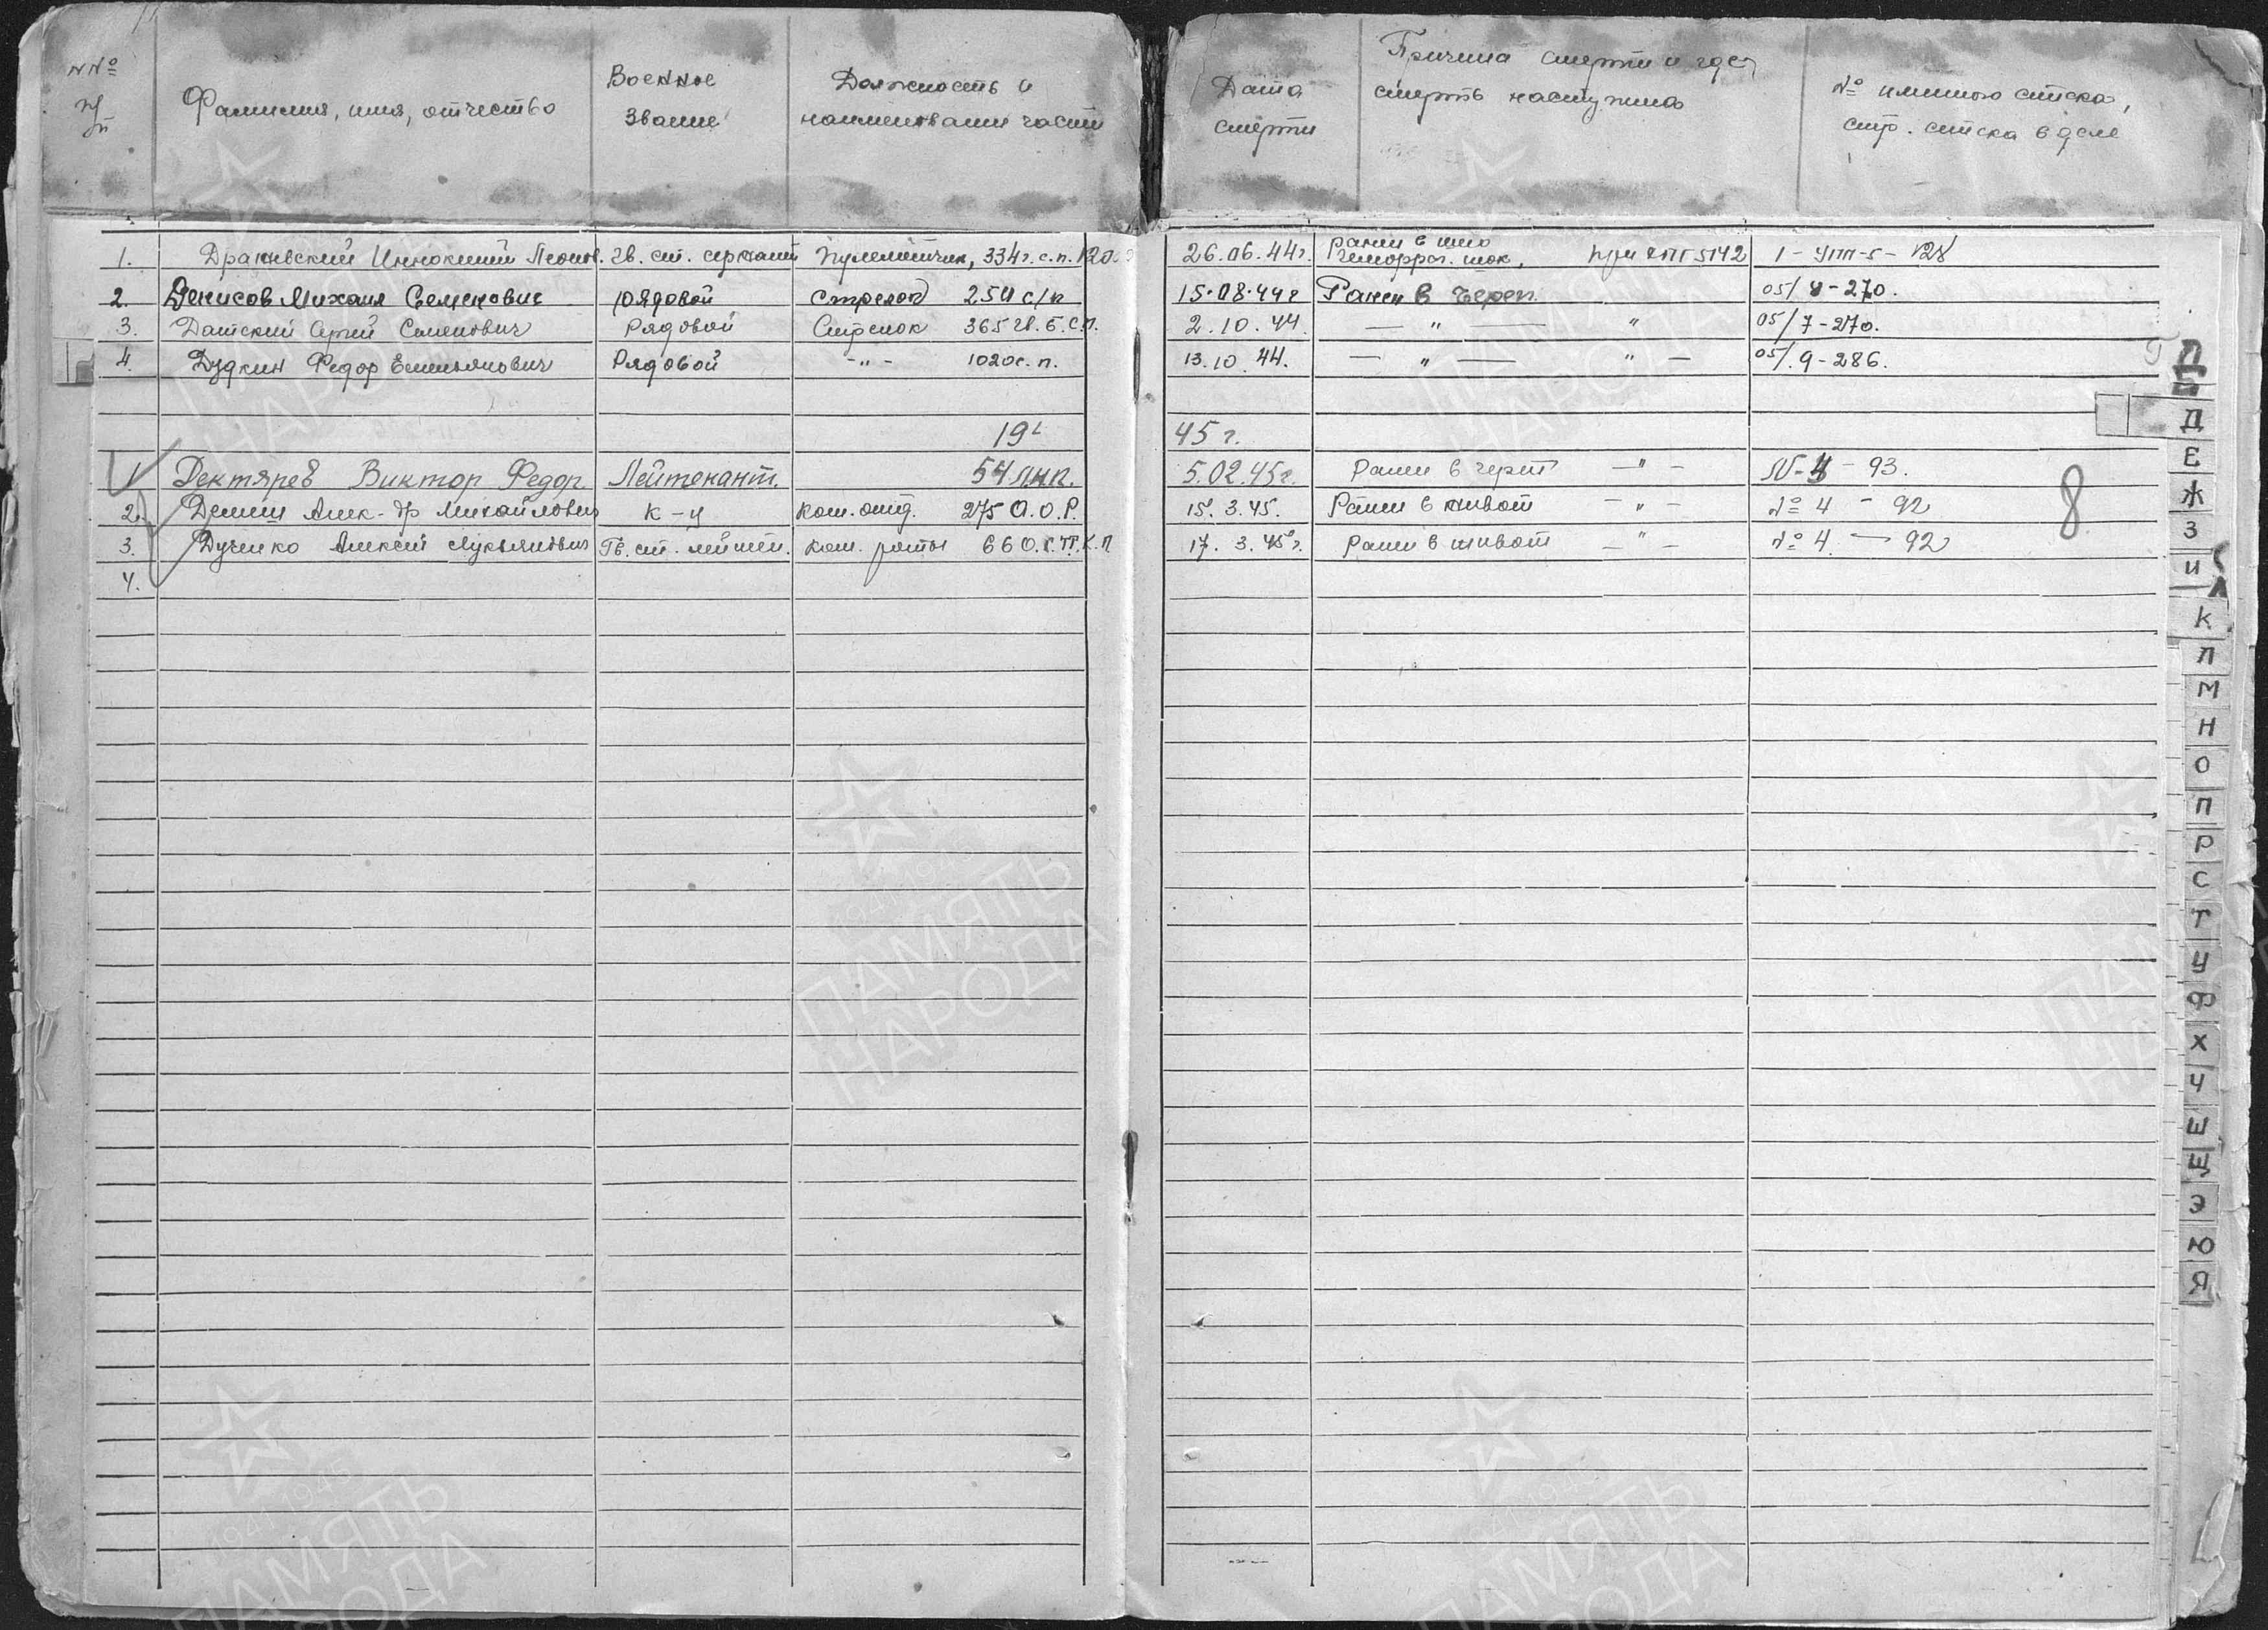 NNº п/п Фамилия, имя, отчество Военное звание Должность и наименование части Дата смерти Причина смерти и где смерть наступила № именного списка, стр. списка в деле
1. Иннокентий Леонов. гв. ст. сержант Пулеметчик, 334 г. с.п. 120 26.06.44г. Геморраг. шок, при ХППГ 5142 1-УПП-5-128
2. Денисов Михаил Семенович рядовой стрелок 250 с/п 15.08.44г Ранен в череп. 05/8-270.
3. Датский Сергей Семенович Рядовой Стрелок 365 гв. с.п. 2.10.44 — " — " 05/7-270.
4. Дудкин Федор Емельянович Рядовой -"- 1020 с.п. 13.10.44. — " — " — 05/.9-286.
19 45 г.
1 Дектярев Виктор Федор. Лейтенант. 54 5.02.45г. Ранен в череп — " — № 4 - 93.
2. Алек-др Михайлович к-н Ком. отд. 275 О.О.Р. 15.3.45. Ранен в живот — " — № 4 - 92
3. Дученко Алексей Лукьянович Гв. ст. лейтен. Ком. роты 17.3.45г. Ранен в живот — " — № 4 — 92
4.
8
Д
Д
Е
Ж
З
И
К
Л
М
Н
О
П
Р
С
Т
У
Ф
Х
Ч
Ш
Щ
Э
Ю
Я
1941-1945
ПАМЯТЬ
НАРОДА